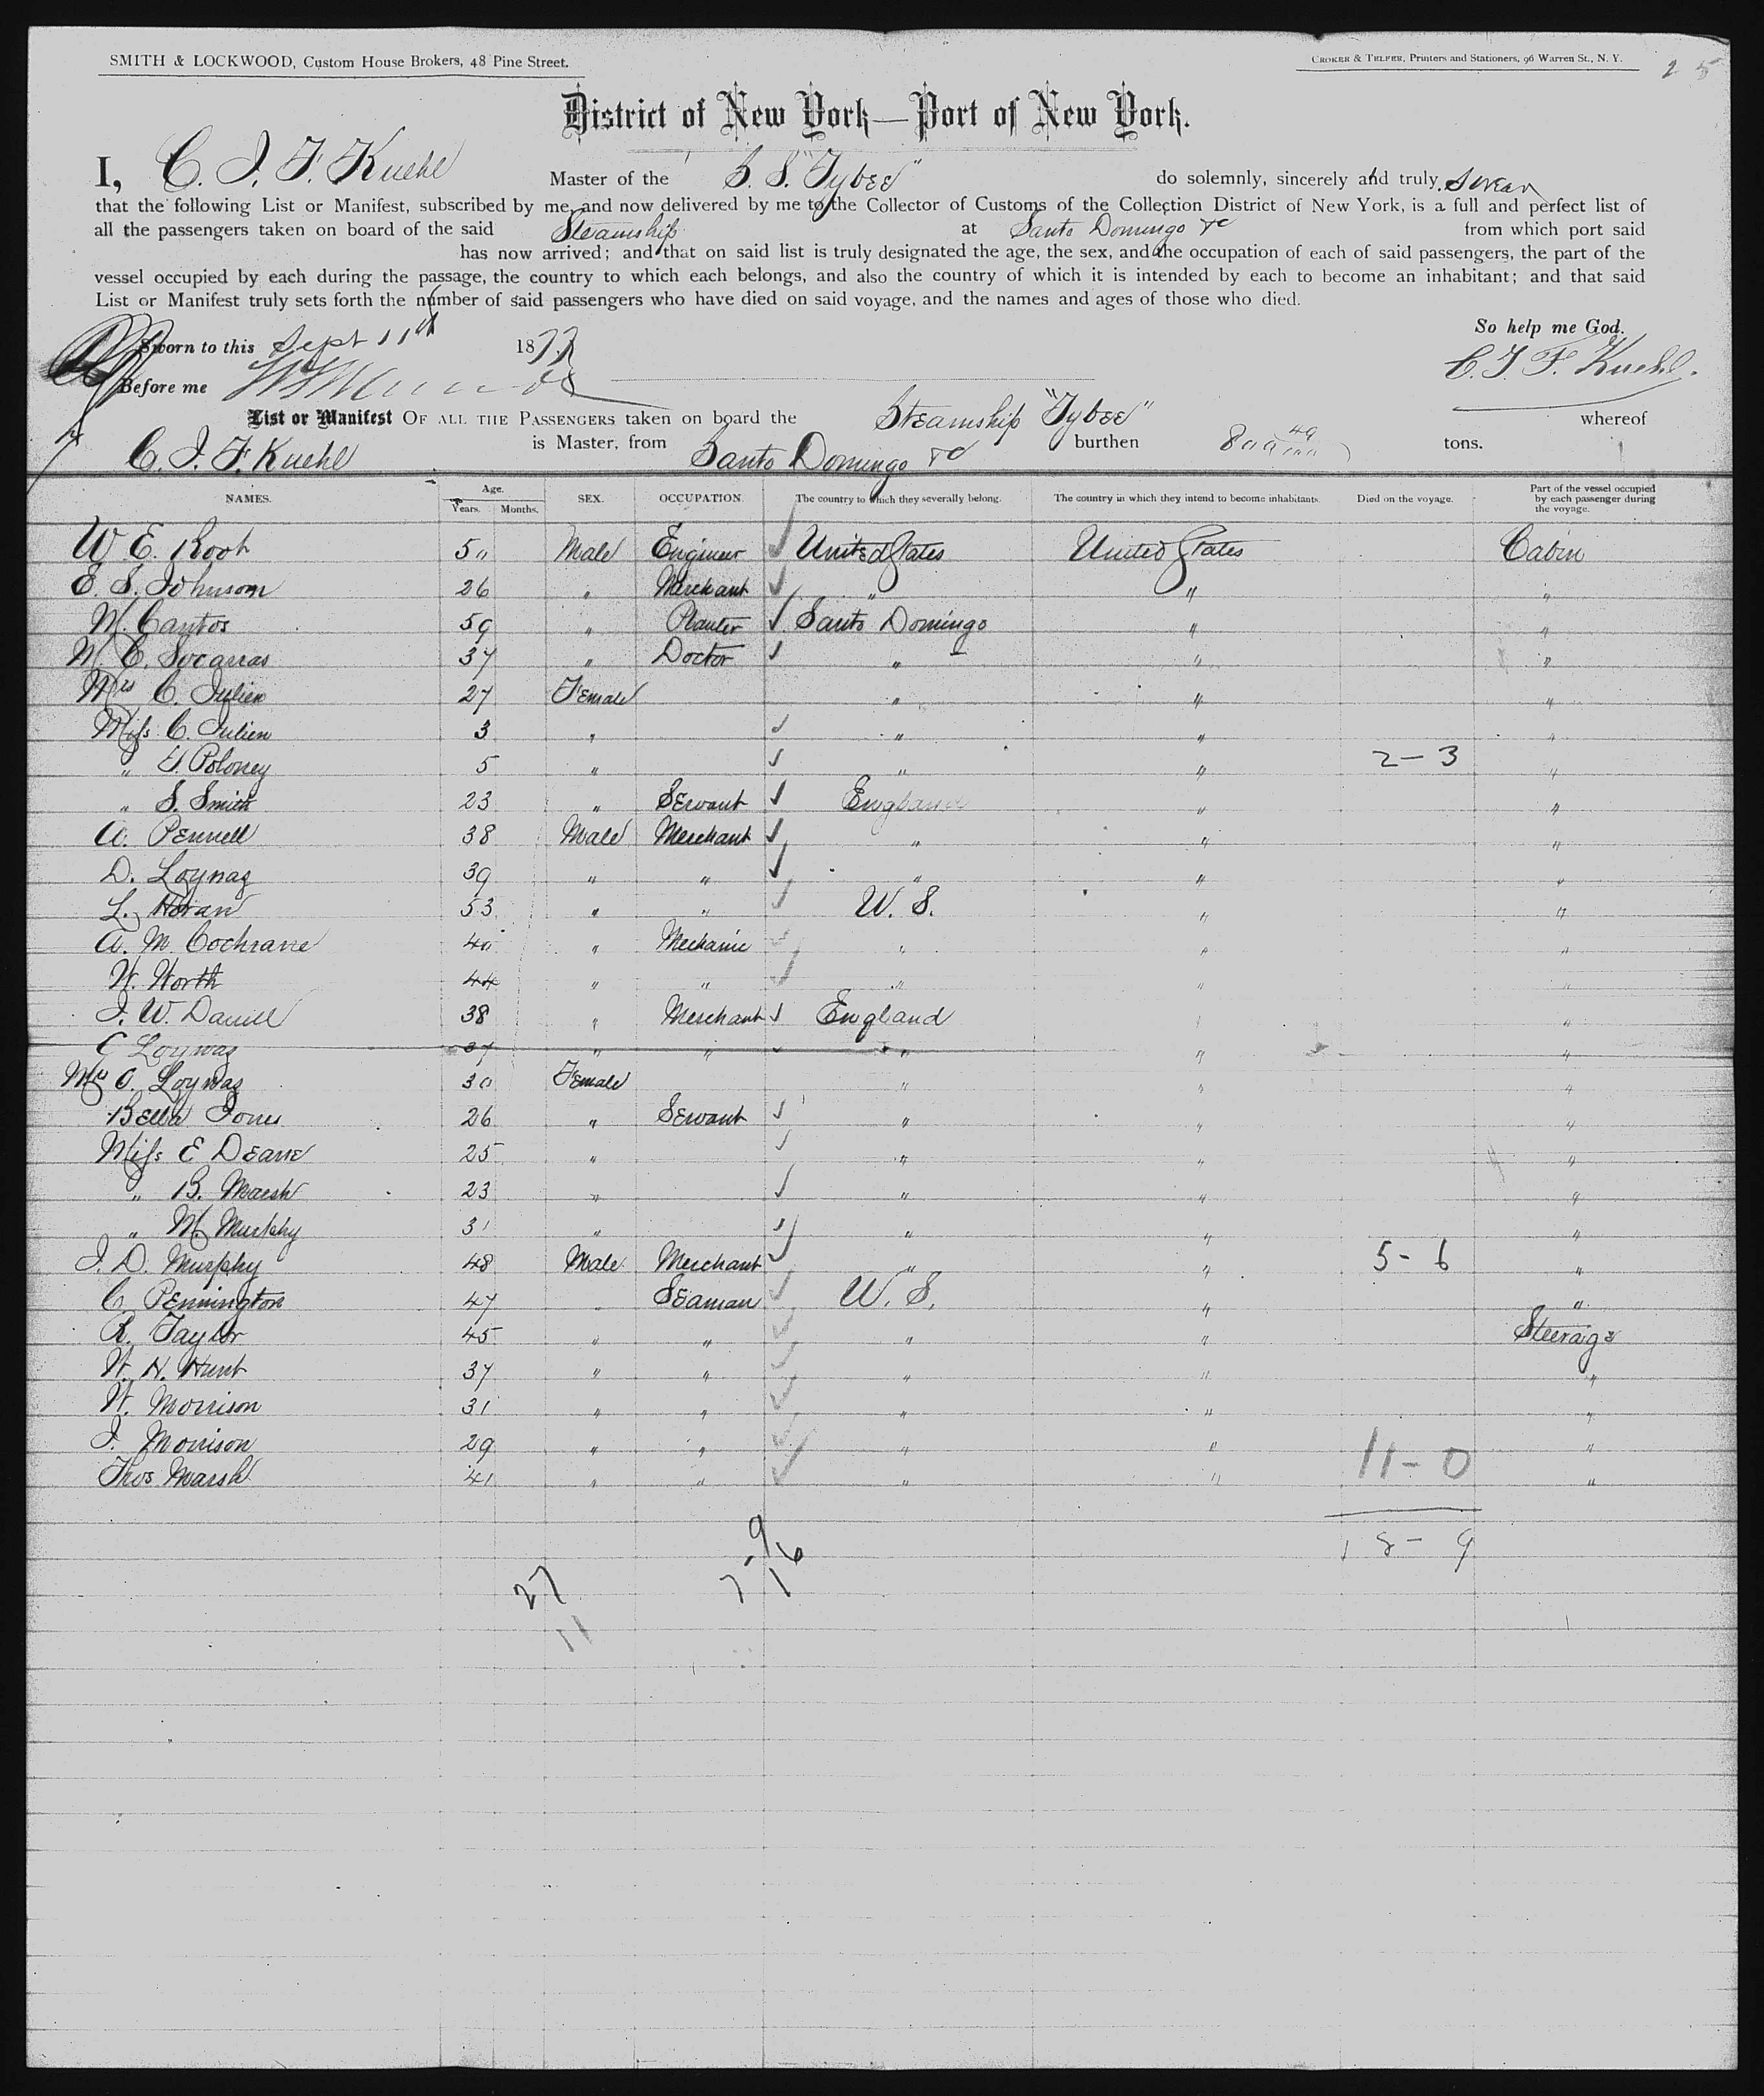 SMITH & LOCKWOOD, Custom House Brokers, 48 Pine Street.
CROKER & TELFER, Printers and Stationers, 96 Warren St., N. Y.
2 5
District of New York—Port of New York.
I, C. J. F. Kuehl Master of the S. S. "Tybee" do solemnly, sincerely and truly swear
that the following List or Manifest, subscribed by me, and now delivered by me to the Collector of Customs of the Collection District of New York, is a full and perfect list of
all the passengers taken on board of the said Steamship at Santo Domingo &c from which port said
has now arrived; and that on said list is truly designated the age, the sex, and the occupation of each of said passengers, the part of the
vessel occupied by each during the passage, the country to which each belongs, and also the country of which it is intended by each to become an inhabitant; and that said
List or Manifest truly sets forth the number of said passengers who have died on said voyage, and the names and ages of those who died.
So help me God.
Sworn to this Sept 11th 1877
C. J. F. Kuehl.
Before me
List or Manifest OF ALL THE PASSENGERS taken on board the Steamship "Tybee" whereof
C. J. F. Kuehl is Master, from Santo Domingo &c burthen tons.
NAMES. Age. Years. Months. SEX. OCCUPATION. The country to which they severally belong. The country in which they intend to become inhabitants. Died on the voyage. Part of the vessel occupied by each passenger during the voyage.
W. E. Root 50 Male Engineer United States United States Cabin
E. S. Johnson 26 " Merchant " " "
M. Cantos 59 " Planter Santo Domingo " "
M. E. Socarras 37 " Doctor " " "
Mrs C. Julien 27 Female " " "
Miss C. Julien 3 " " " "
" Poloney 5 " " " 2-3 "
" S. Smith 23 " Servant England " "
A. Pennell 38 Male Merchant " " "
D. Loynaz 39 " " " " "
L. Horan 53 " " U. S. " "
A. M. Cochrane 40 " Mechanic " " "
W. Worth 44 " " " " "
J. W. Daniell 38 " Merchant England " "
C Loynaz 37 " " " " "
Mrs C. Loynaz 30 Female " " "
Bella Jones 26 " Servant " " "
Miss E Deane 25 " " " "
" B. Marsh 23 " " " "
" M. Murphy 31 " " " "
J. D. Murphy 48 Male Merchant " " 5-6 "
C. Pennington 47 " Seaman U. S. " "
R. Taylor 45 " " " " Steerage
W. H. Hunt 37 " " " " "
W. Morrison 31 " " " " "
J. Morrison 29 " " " " "
Thos Marsh 41 " " " " 11-0 "
18-9
27
11